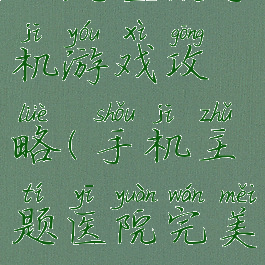 jī yóu xì gōng
机游戏攻
lüè shǒu jī zhǔ
略(手机主
tí yī yuàn wán měi
题医院完美